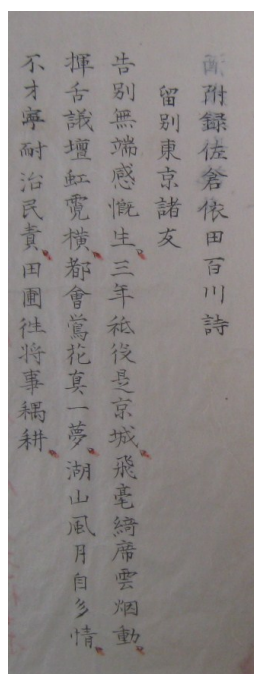 附録佐倉依田百川詩
留別東京諸友
告別無端感慨生三年祗役是京城飛毫綺席雲烟動
揮舌議壇虹霓橫都會鶯花真一夢湖山風月自多情
不才寧耐治民責田圃徃将事耦耕